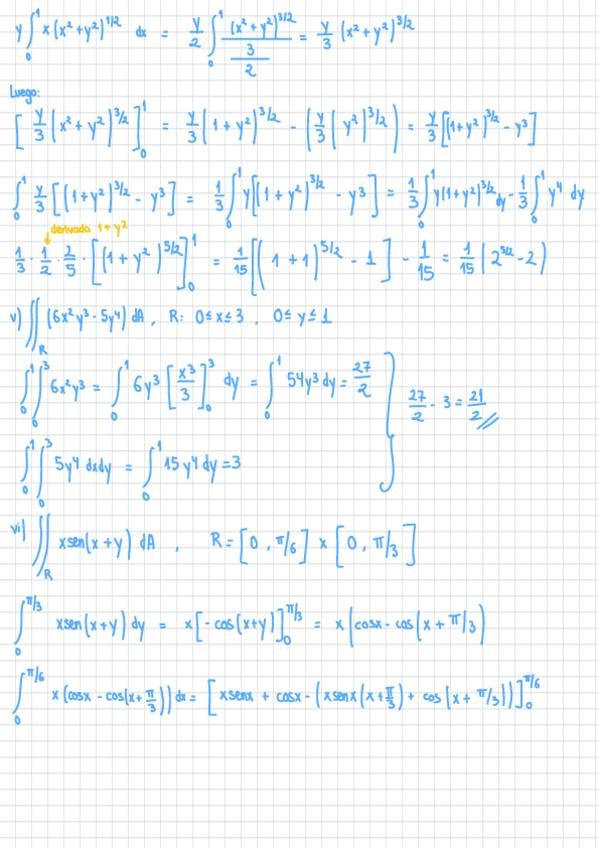 y ∫₀¹ x(x²+y²)^{1/2} dx = y/2 ∫₀¹ (x²+y²)^{3/2} / (3/2) = y/3 (x²+y²)^{3/2}
Luego:
[ y/3 (x²+y²)^{3/2} ]₀¹ = y/3 (1+y²)^{3/2} - ( y/3 (y²)^{3/2} ) = y/3 [(1+y²)^{3/2} - y³]
∫₀¹ y/3 [(1+y²)^{3/2} - y³] = 1/3 ∫₀¹ y[(1+y²)^{3/2} - y³] = 1/3 ∫₀¹ y(1+y²)^{3/2} dy - 1/3 ∫₀¹ y⁴ dy
derivada 1+y²
1/3 · 1/2 · 2/5 · [(1+y²)^{5/2}]₀¹ = 1/15 [(1+1)^{5/2} - 1] - 1/15 = 1/15 (2^{5/2} - 2)
v) ∬_R (6x²y³ - 5y⁴) dA, R: 0≤x≤3, 0≤y≤1
∫₀¹ ∫₀³ 6x²y³ = ∫₀¹ 6y³ [x³/3]₀³ dy = ∫₀¹ 54y³ dy = 27/2
27/2 - 3 = 21/2
∫₀¹ ∫₀³ 5y⁴ dxdy = ∫₀¹ 15y⁴ dy = 3
vi) ∬_R xsen(x+y) dA , R = [0, π/6] x [0, π/3]
∫₀^{π/3} xsen(x+y) dy = x[-cos(x+y)]₀^{π/3} = x(cosx - cos(x + π/3)
∫₀^{π/6} x(cosx - cos(x+π/3)) dx = [xsenx + cosx - (xsenx(x+π/3) + cos(x + π/3))]₀^{π/6}